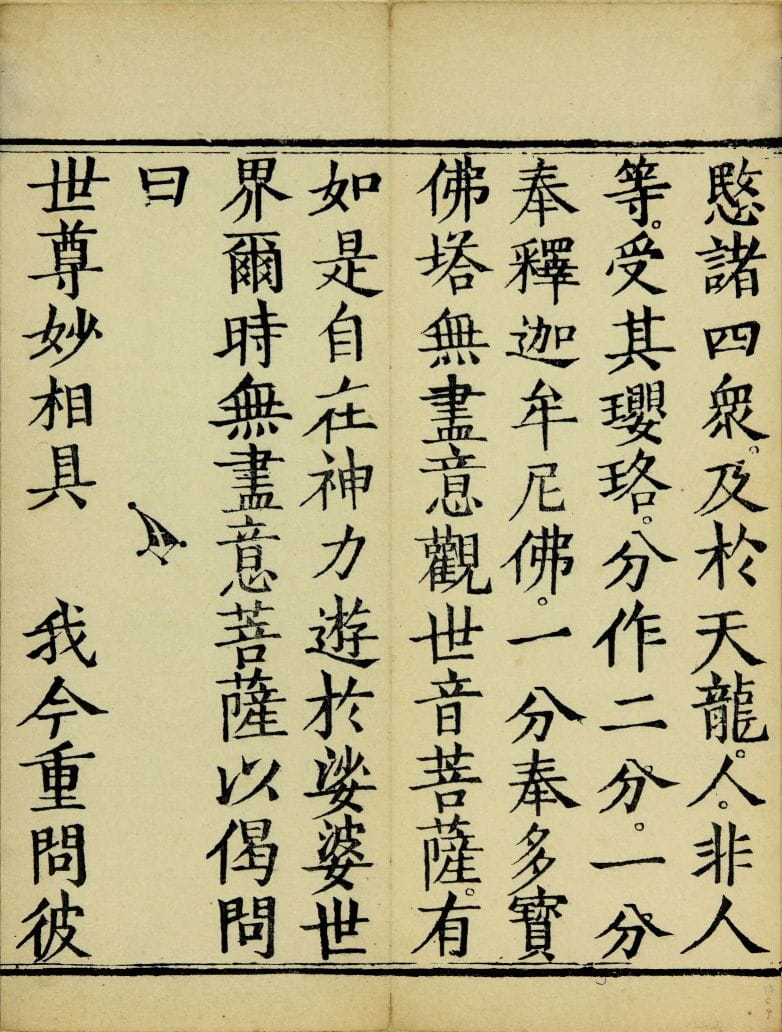 愍諸四衆。及於天龍。人。非人
等。受其瓔珞。分作二分。一分
奉釋迦牟尼佛。一分奉多寶
佛塔無盡意觀世音菩薩。有
如是自在神力遊於娑婆世
界爾時無盡意菩薩以偈問
曰
世尊妙相具　我今重問彼